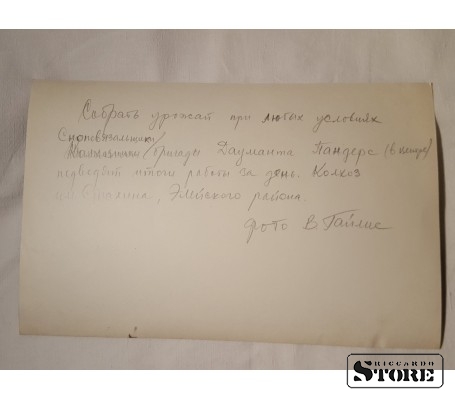 Собрать урожай при любых условиях
Сноповязальщики
/бригады Дауманта Пандерс (в центре)
подводят итоги работы за день. Колхоз
им. Сталина, Элейского района.
фото В. Гайлис
RICCARDO
STORE